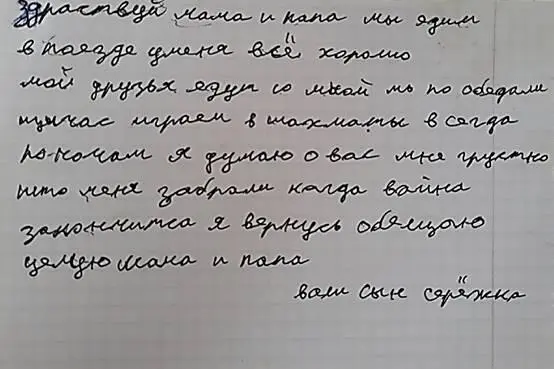 здраствуй мама и папа мы едим
в поезде уменя всё хорошо
мои друзья едут со мной мы по обедали
щичас играем в шахматы всегда
по-ночам я думаю о вас мне грустно
што меня забрали кагда вайна
закончитса я вернусь обещаю
целую мама и папа
ваш сын серёжка